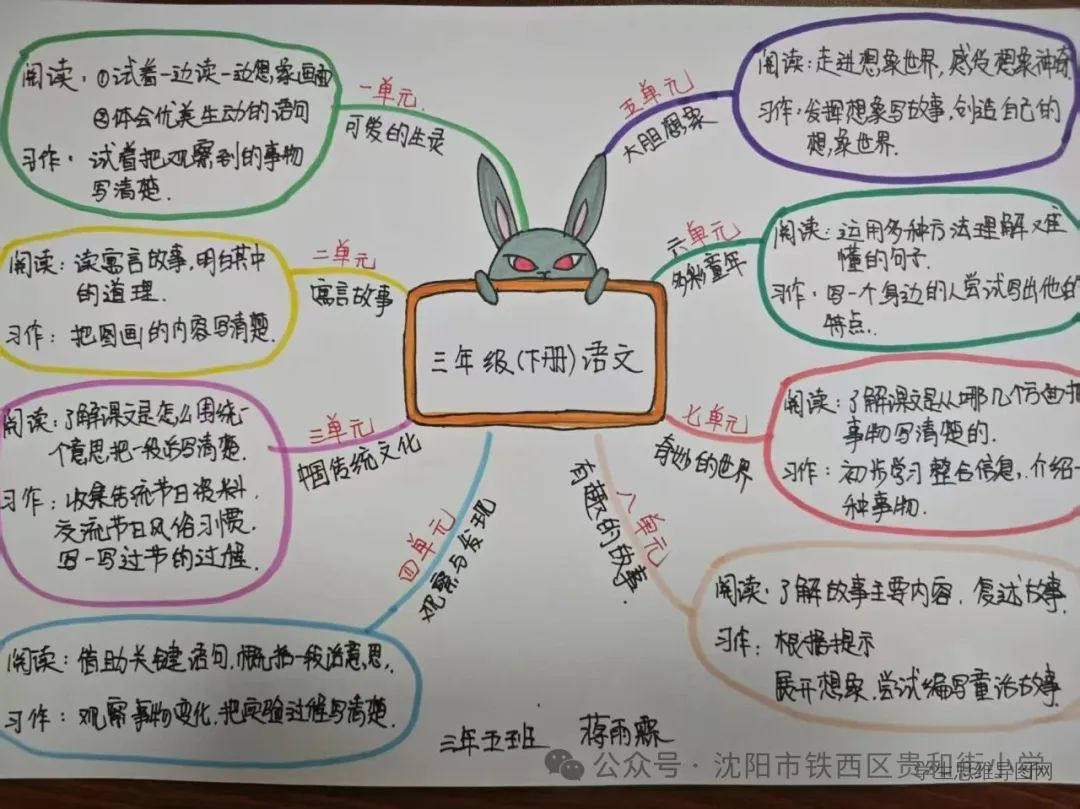 三年级(下册)语文
一单元
可爱的生灵
阅读：①试着一边读一边想象画面
②体会优美生动的语句
习作：试着把观察到的事物
写清楚.
二单元
寓言故事
阅读：读寓言故事,明白其中
的道理.
习作：把图画的内容写清楚.
三单元
中国传统文化
阅读：了解课文是怎么围绕一
个意思把一段话写清楚.
习作：收集传统节日资料,
交流节日风俗习惯.
写一写过节的过程.
四单元
观察与发现
阅读：借助关键语句,概括一段话意思.
习作：观察事物变化,把实验过程写清楚.
五单元
大胆想象
阅读：走进想象世界,感受想象神奇
习作：发挥想象写故事,创造自己的
想象世界.
六单元
多彩童年
阅读：运用多种方法理解难
懂的句子.
习作：写一个身边的人尝试写出他的
特点.
七单元
奇妙的世界
阅读：了解课文是从哪几个方面把
事物写清楚的.
习作：初步学习整合信息,介绍一
种事物.
八单元
有趣的故事.
阅读：了解故事主要内容.复述故事.
习作：根据提示
展开想象.尝试编写童话故事
三年五班 蒋雨霖
公众号·沈阳市铁西区贵和街小学
学生思维导图网